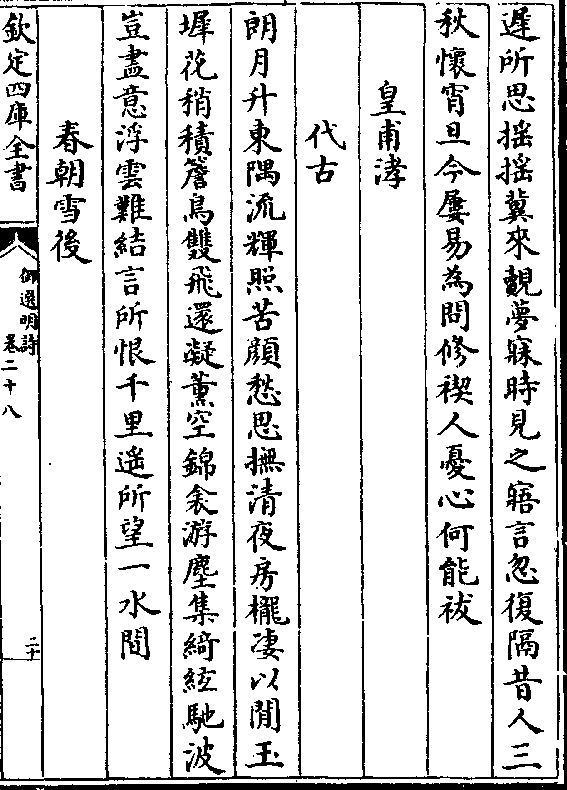 遲所思揺揺冀來覯夢寐時見之寤言忽復隔昔人三
秋懷宵旦今屢易為問修禊人憂心何能祓
皇甫涍
代古
朗月升東隅流輝照苦顔愁思撫清夜房櫳凄以閒玉
墀花稍積簷鳥雙飛還凝薰空錦衾游塵集綺絃馳波
豈盡意浮雲難結言所恨千里遥所望一水間
春朝雪後
欽定四庫全書
御選明詩
卷二十八
二十